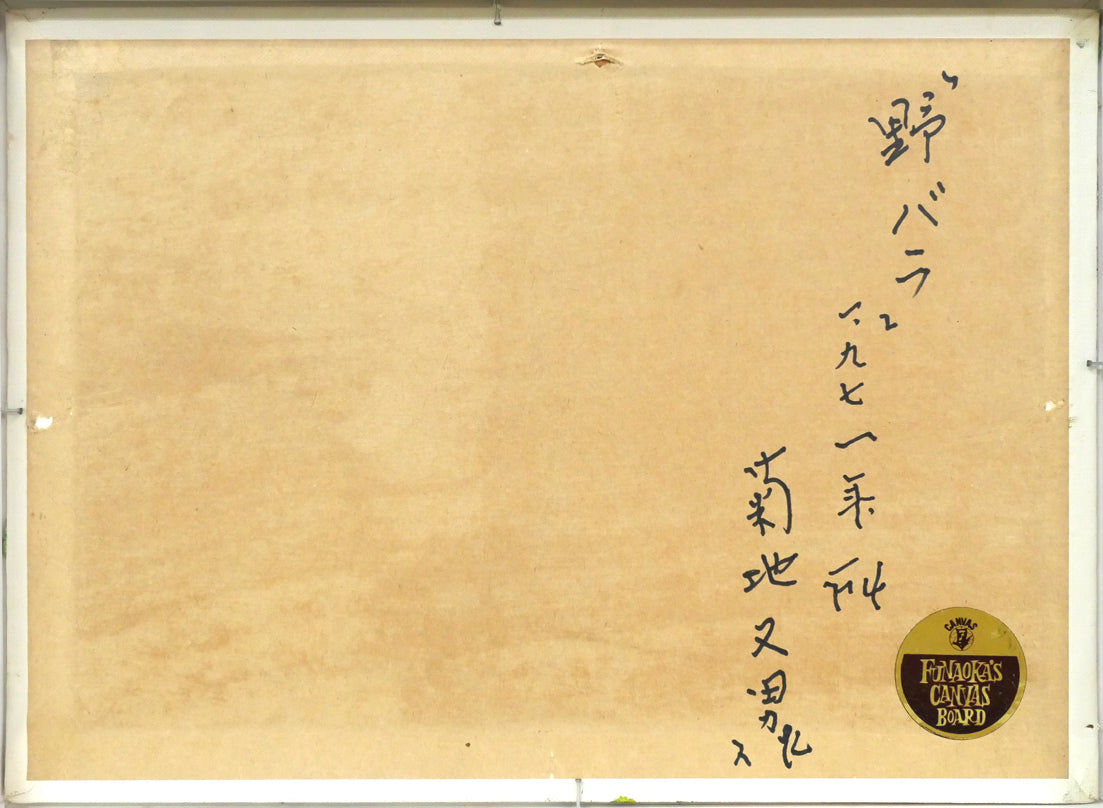 "野バラ"
一九七一年
菊地又男
CANVAS
F
FUNAOKA'S
CANVAS
BOARD